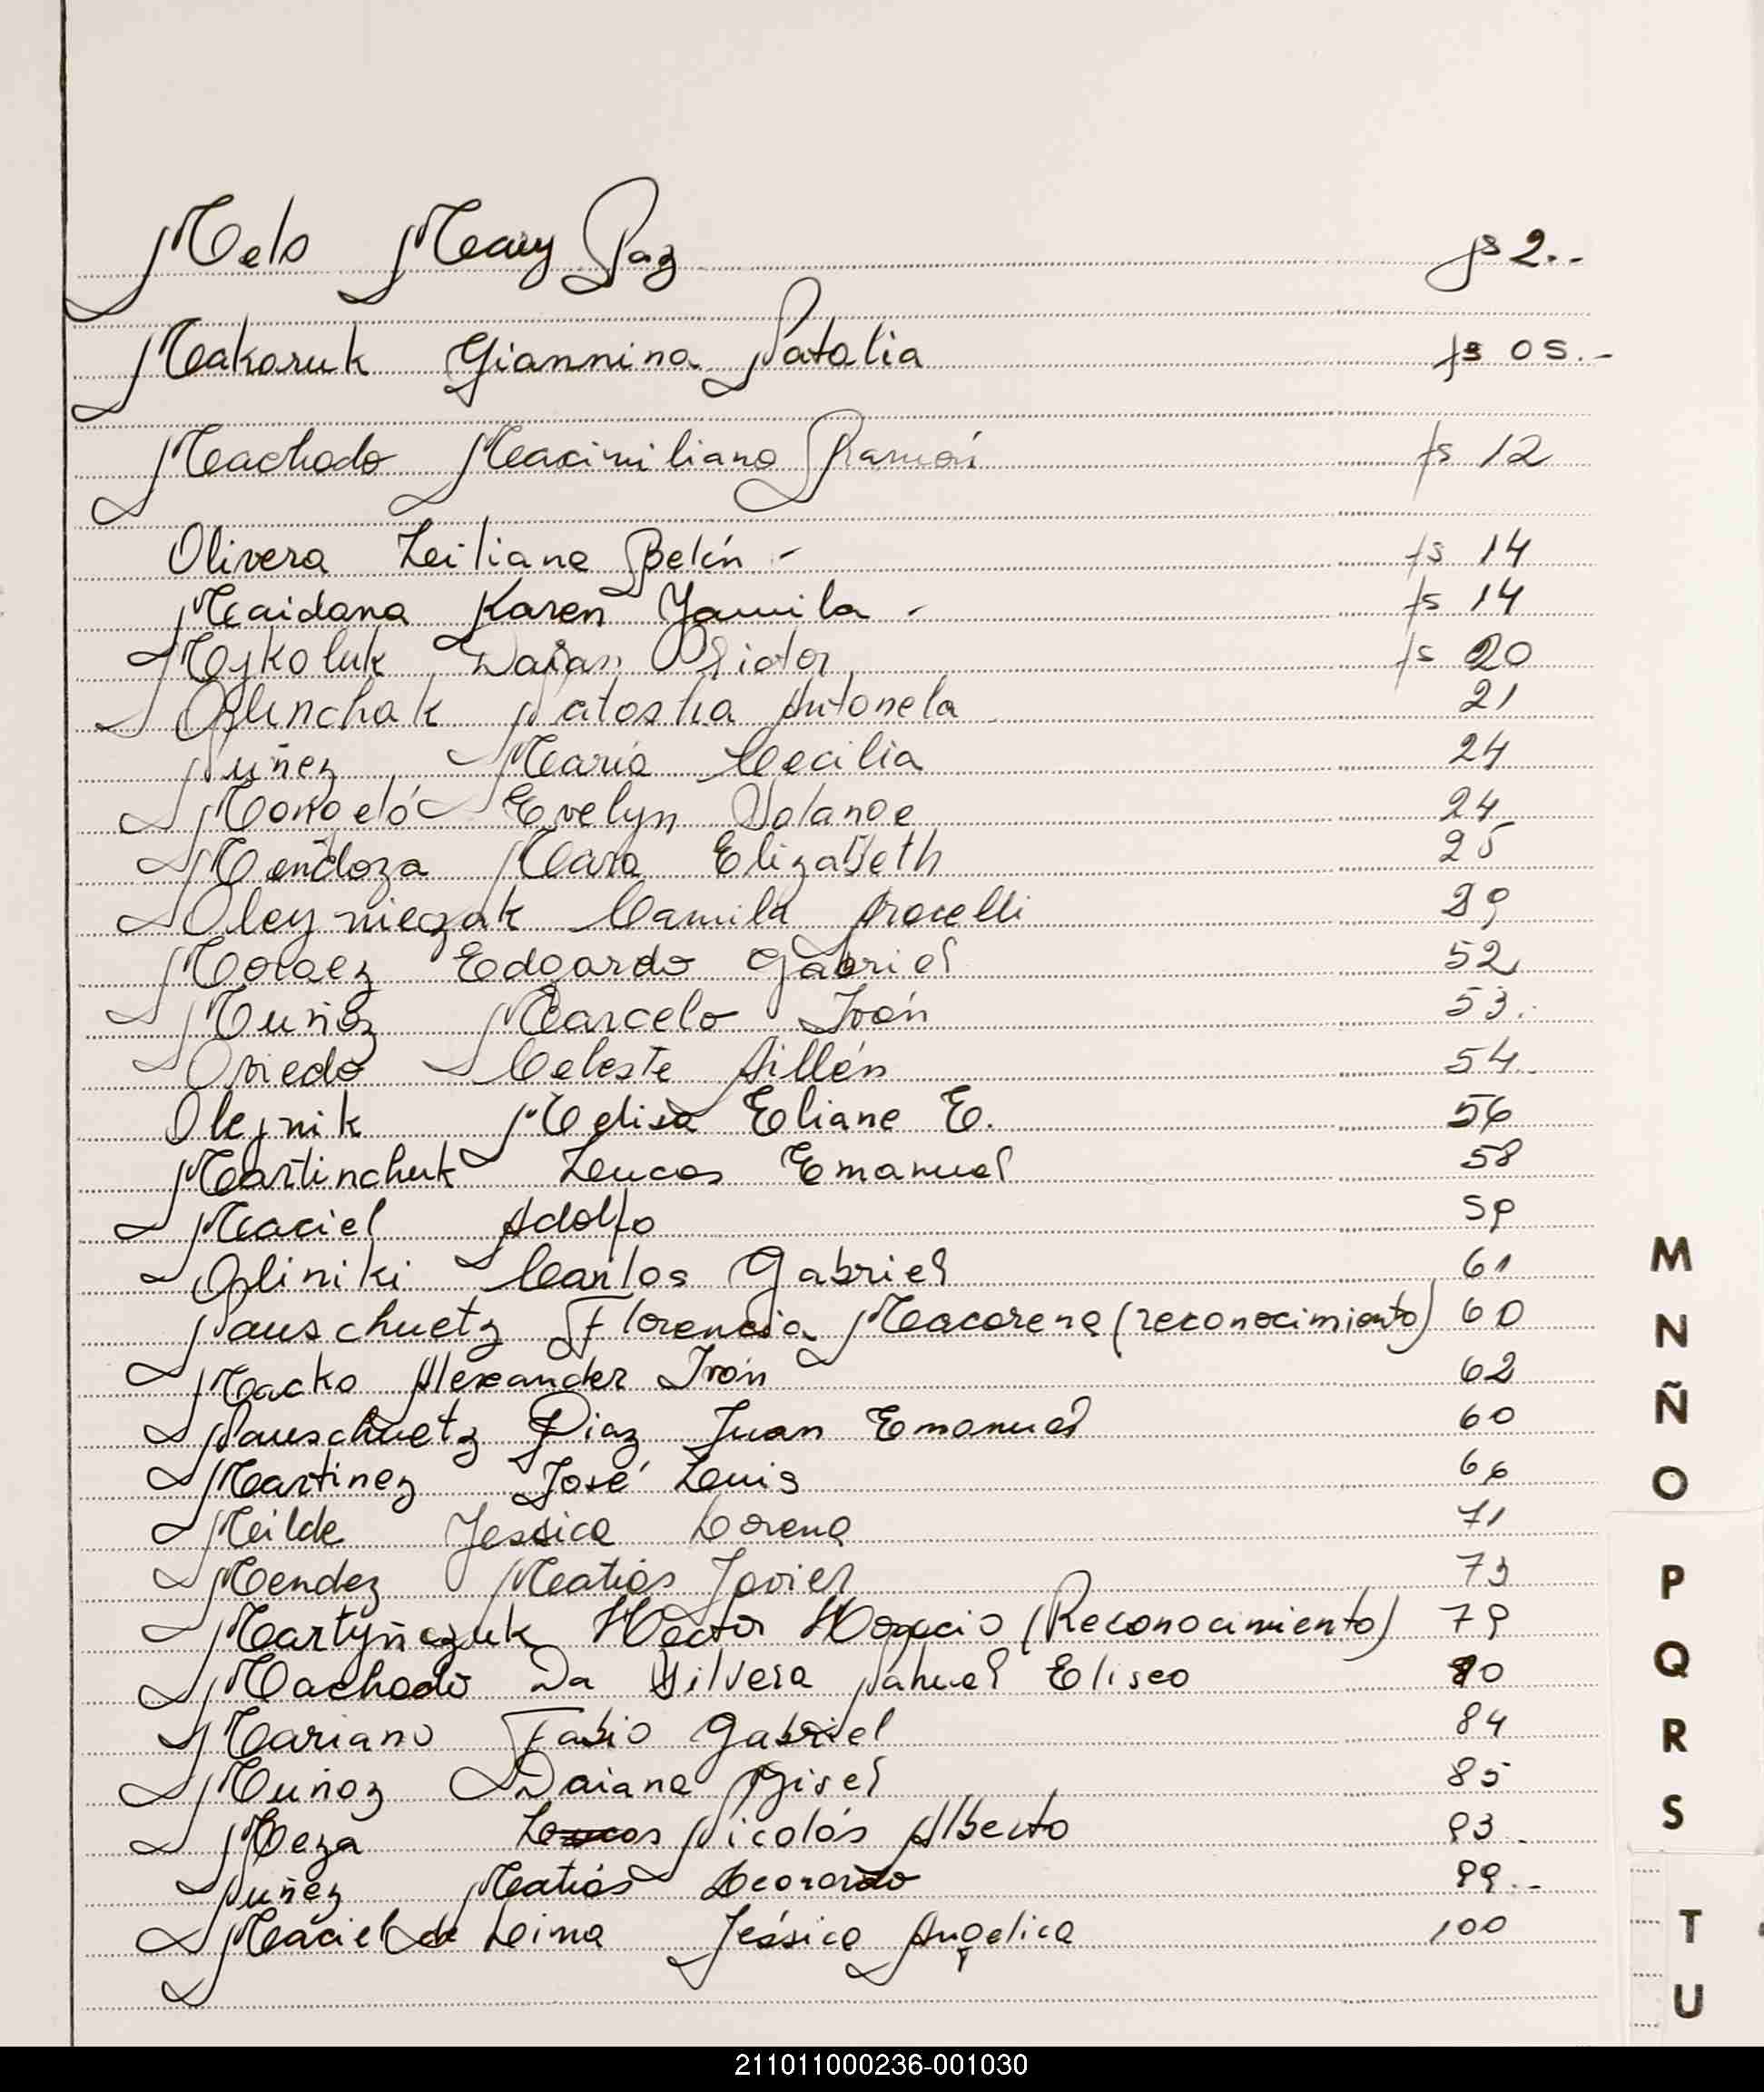 Melo Mary Paz fs 2.-
Makaruk Giannina Natalia fs 05.-
Machado Maximiliano Ramón fs 12
Olivera Liliana Belén - fs 14
Maidana Karen Yamila - fs 14
Mykoluk Daian Victor fs 20
Oplinchak Natasha Antonela 21
Nuñez María Cecilia 24
Evelyn Solange 24
Mendoza Mara Elizabeth 25
Oleynieczak Camila Aracelli 29
Edgardo Gabriel 52
Muñoz Marcelo Iván 53.
Oviedo Celeste Aillén 54.
Olejnik Melisa Eliane E. 56
Martinchuk Lucas Emanuel 58
Maciel Adolfo 59
Opliniki Carlos Gabriel 61
Nauschuetz Florencia Macarena (reconocimiento) 60
Macko Alexander Iván 62
Nauschuetz Diaz Juan Emanuel 60
Martinez José Luis 66
Milde Jessica Lorena 71
Mendez Matiás Javier 73
Martyñczuk Héctor Horacio (Reconocimiento) 79
Machado Da Silvera Nahuel Eliseo 80
Mariano Fabio Gabriel 84
Muñoz Daiana Gisel 85
Meza Lucas Nicolás Alberto 93.
Nuñez Matiás Leonardo 99.-
Maciel de Lima Jéssica Angelica 100
M
N
Ñ
O
P
Q
R
S
T
U
211011000236-001030